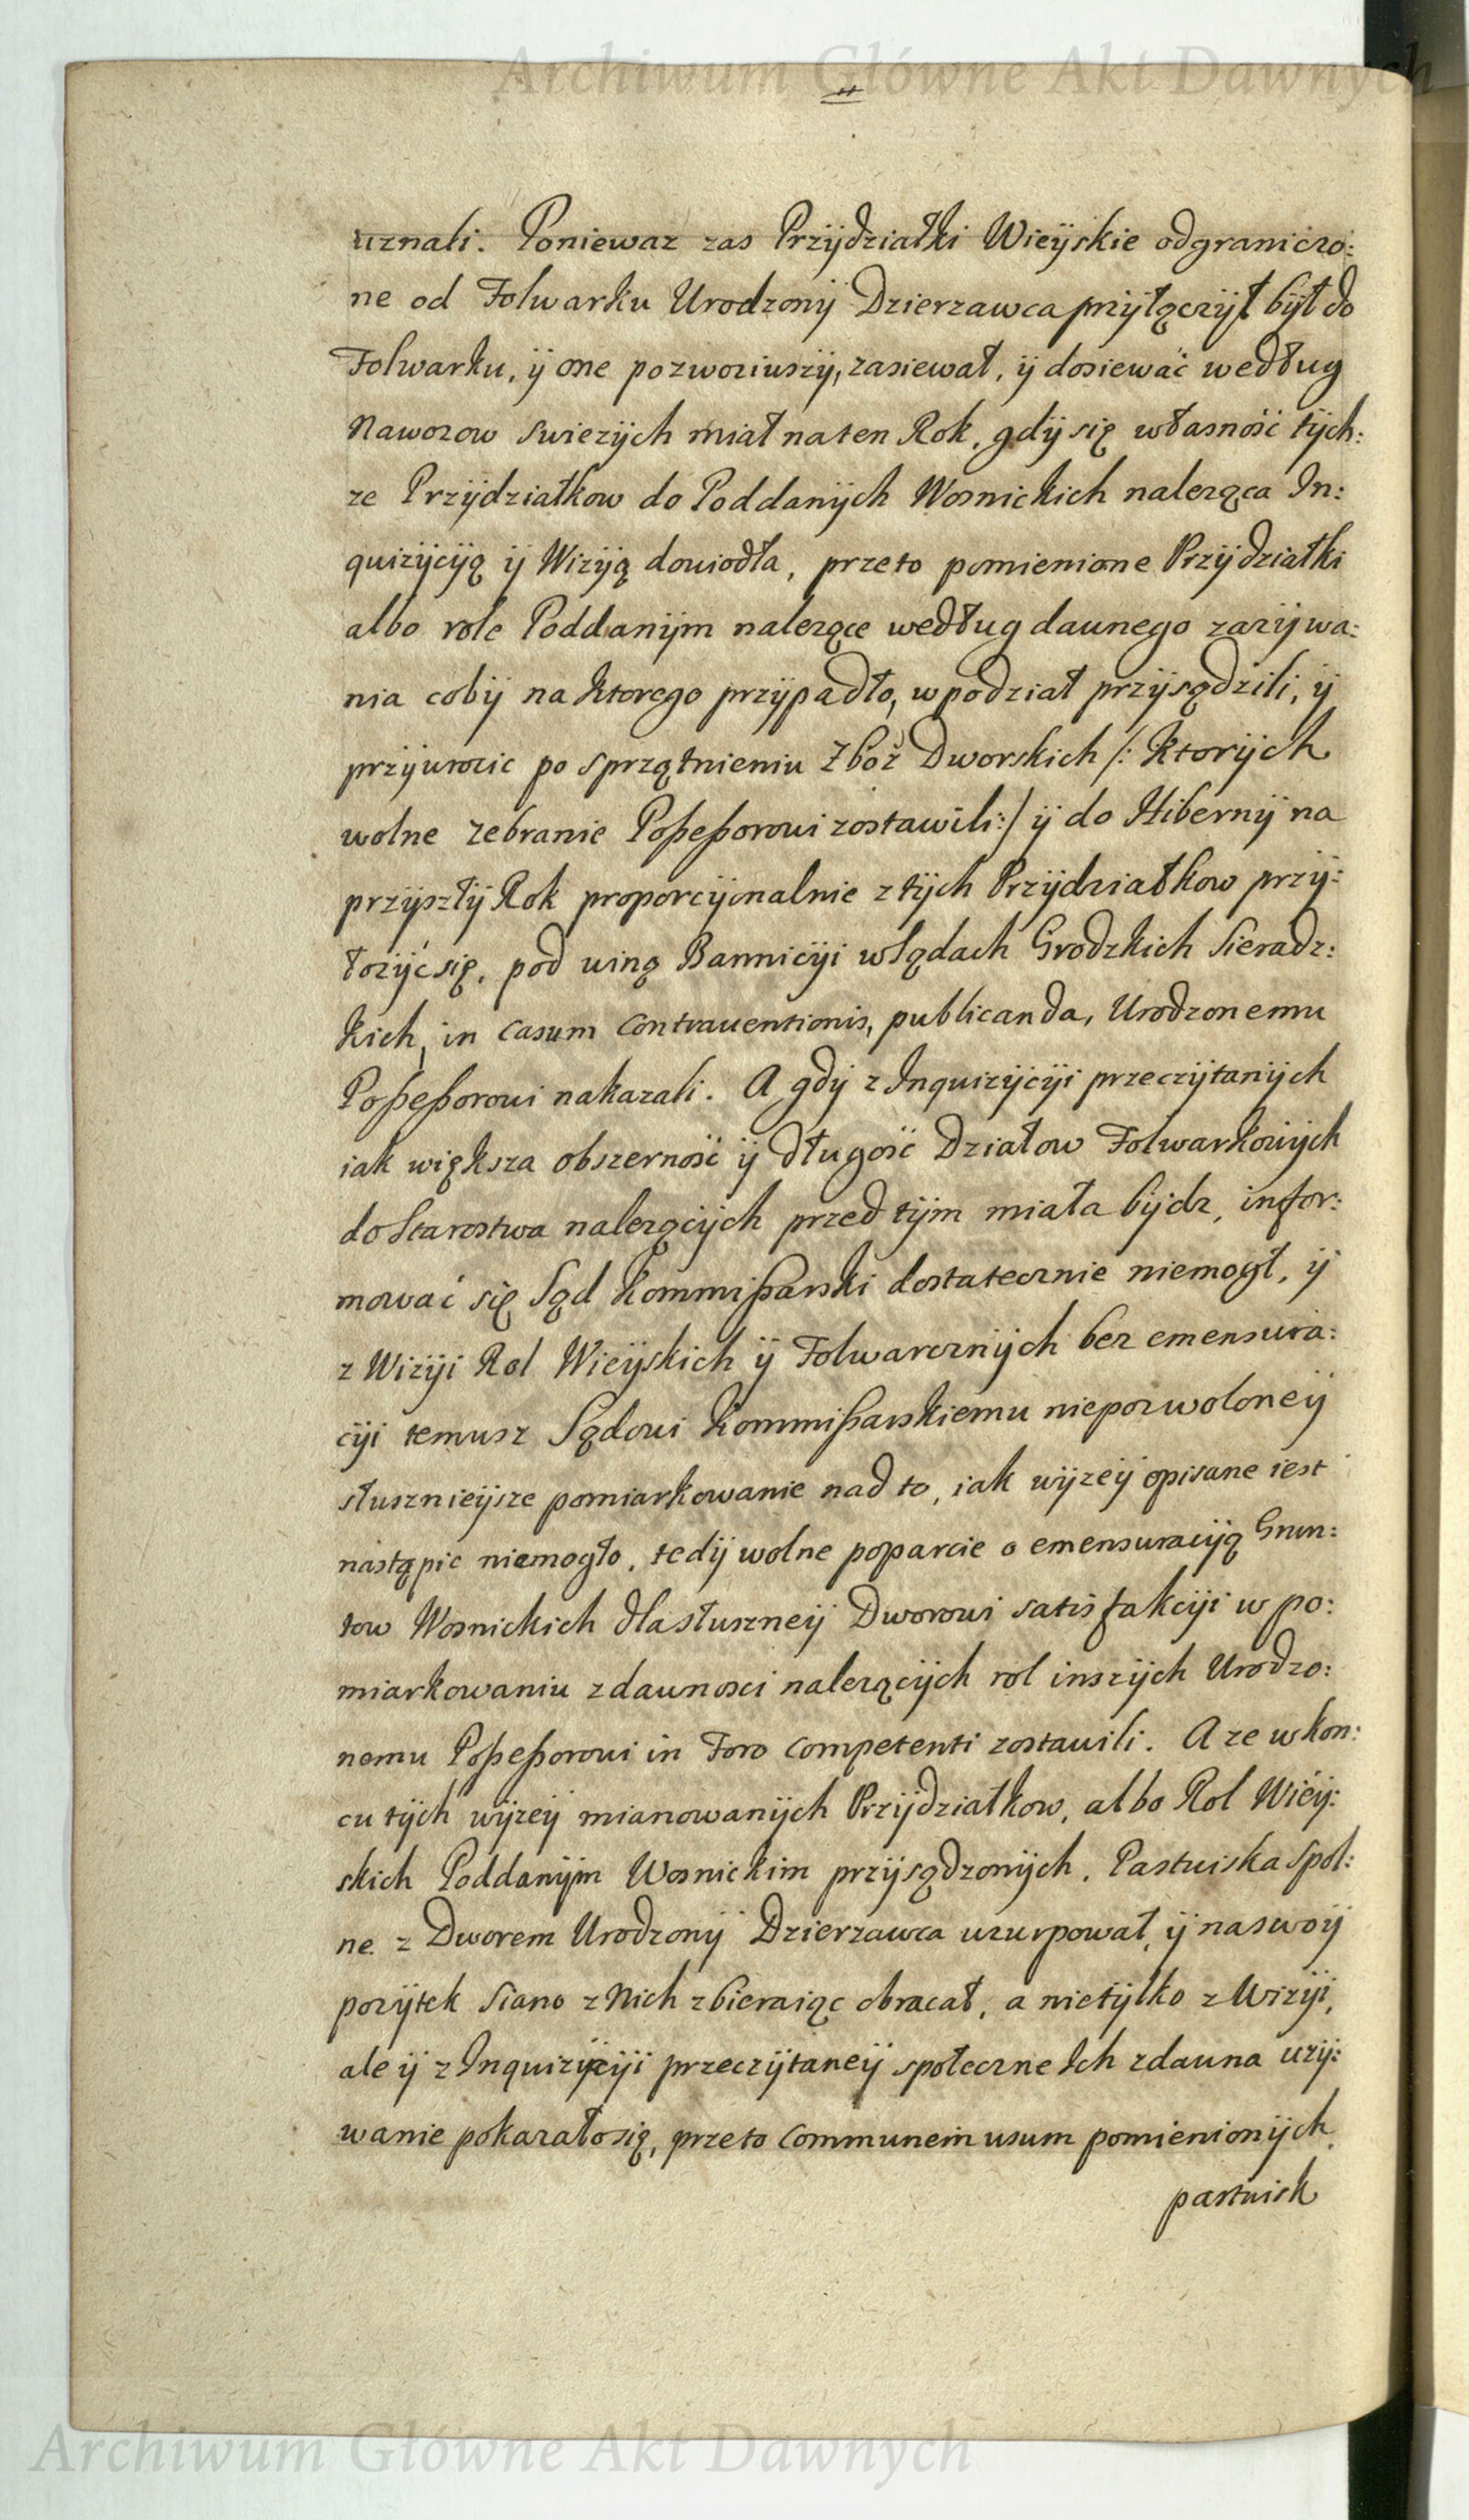 Archiwum Główne Akt Dawnych
uznali. Poniewaz zas Przÿdziałki Wieÿskie odgraniczo:
ne od Folwarku Urodzonÿ Dzierzawca przÿłączÿł bÿł do
Folwarku, ÿ one pozwoziuszÿ, zasiewał, ÿ dosiewać według
Nawozow swiezÿch miał na ten Rok, gdÿ się własność tÿch:
ze Przÿdziałkow do Poddanÿch Wosnickich naleząca In:
quizÿcÿą ÿ Wizÿą dowiodła, przeto pomienione Przÿdziałki
albo role Poddanÿm nalezące według daunego zazÿwa:
nia cobÿ na ktorego przÿpadło, w podział przÿsądzili, ÿ
przÿwrocic po sprzątnieniu Zboż Dworskich /: ktorÿch
wolne zebranie Poßeßorowi zostawili :/ ÿ do Hibernÿ na
przÿszłÿ Rok proporcÿonalnie z tÿch Przÿdziałkow przÿ:
łozÿć się, pod winą Bannicÿi w Sądach Grodzkich Sieradz:
kich, in casum contrauentionis, publicanda, Urodzonemu
Poßeßorowi nakazali. A gdÿ z Inquizÿcÿi przeczÿtanÿch
iak większa obszerność ÿ długość Działow Folwarkowÿch
do Starostwa nalezącÿch przed tÿm miała bÿdz, infor:
mować się Sąd Kommißarski dostatecznie niemogł, ÿ
z Wizÿi Rol Wieÿskich ÿ Folwarcznÿch bez emensura:
cÿi temusz Sądowi Kommißarskiemu niepozwoloneÿ
słusznieÿsze pomiarkowanie nad to, iak wÿzeÿ opisane iest
nastąpic niemogło, tedÿ wolne poparcie o emensuracÿą Grun:
tow Wosnickich dla słuszneÿ Dworowi satisfakcÿi w po:
miarkowaniu z daunosci nalezącÿch rol inszÿch Urodzo:
nemu Poßeßorowi in Foro competenti zostawili. A ze w kon:
cu tÿch wÿzeÿ mianowanÿch Przÿdziałkow, albo Rol Wieÿ:
skich Poddanÿm Wosnickim przÿsądzonÿch, Pastwiska spol:
ne z Dworem Urodzonÿ Dzierzawca uzurpował, ÿ na swoÿ
pozÿtek Siano z Nich zbieraiąc obracał, a nietÿlko z Wizÿi,
ale ÿ z Inquizÿcÿi przeczÿtaneÿ społeczne Ich zdauna uzÿ:
wanie pokazało się, przeto communem usum pomienionÿch
pastwisk
Archiwum Główne Akt Dawnych